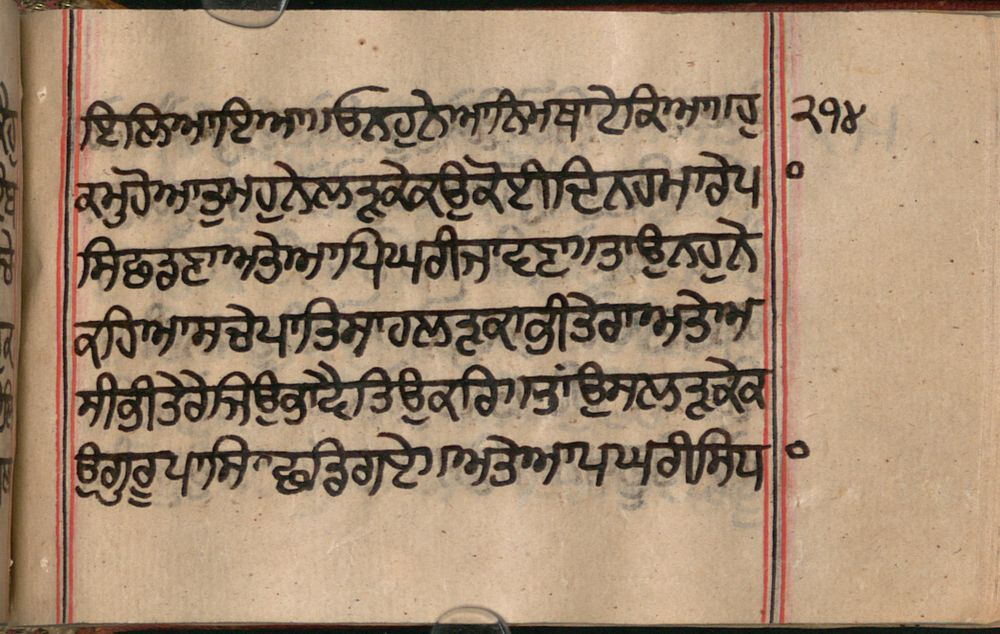 ਇਲਿਆਇਆ।।ਓਨਹੁਨੇਆਨਿਮਥਾਟੇਕਿਆ।।ਹੁ ੨੧੪
ਕਮੁਹੋਆਤੁਮਹੁਨੇਲੜਕੇਕਉਕੋਈਦਿਨਹਮਾਰੇਪ
ਸਿਛਡਣਾਅਤੇਆਪਿਘਰੀਜਾਵਣਾ।ਤਾਉਨਹੁਨੇ
ਕਹਿਆਸਚੇਪਾਤਿਸਾਹਲੜਕਾਭੀਤੇਰਾਅਤੇਅ
ਸੀਭੀਤੇਰੇਜਿਉਭਾਵੈਤਿਉਕਰਿ।ਤਾਂਉਸਲੜਕੇਕ
ਉਗੁਰੂਪਾਸਿਛਡਿਗਏ।ਅਤੇਆਪਘਰੀਸਿਧ